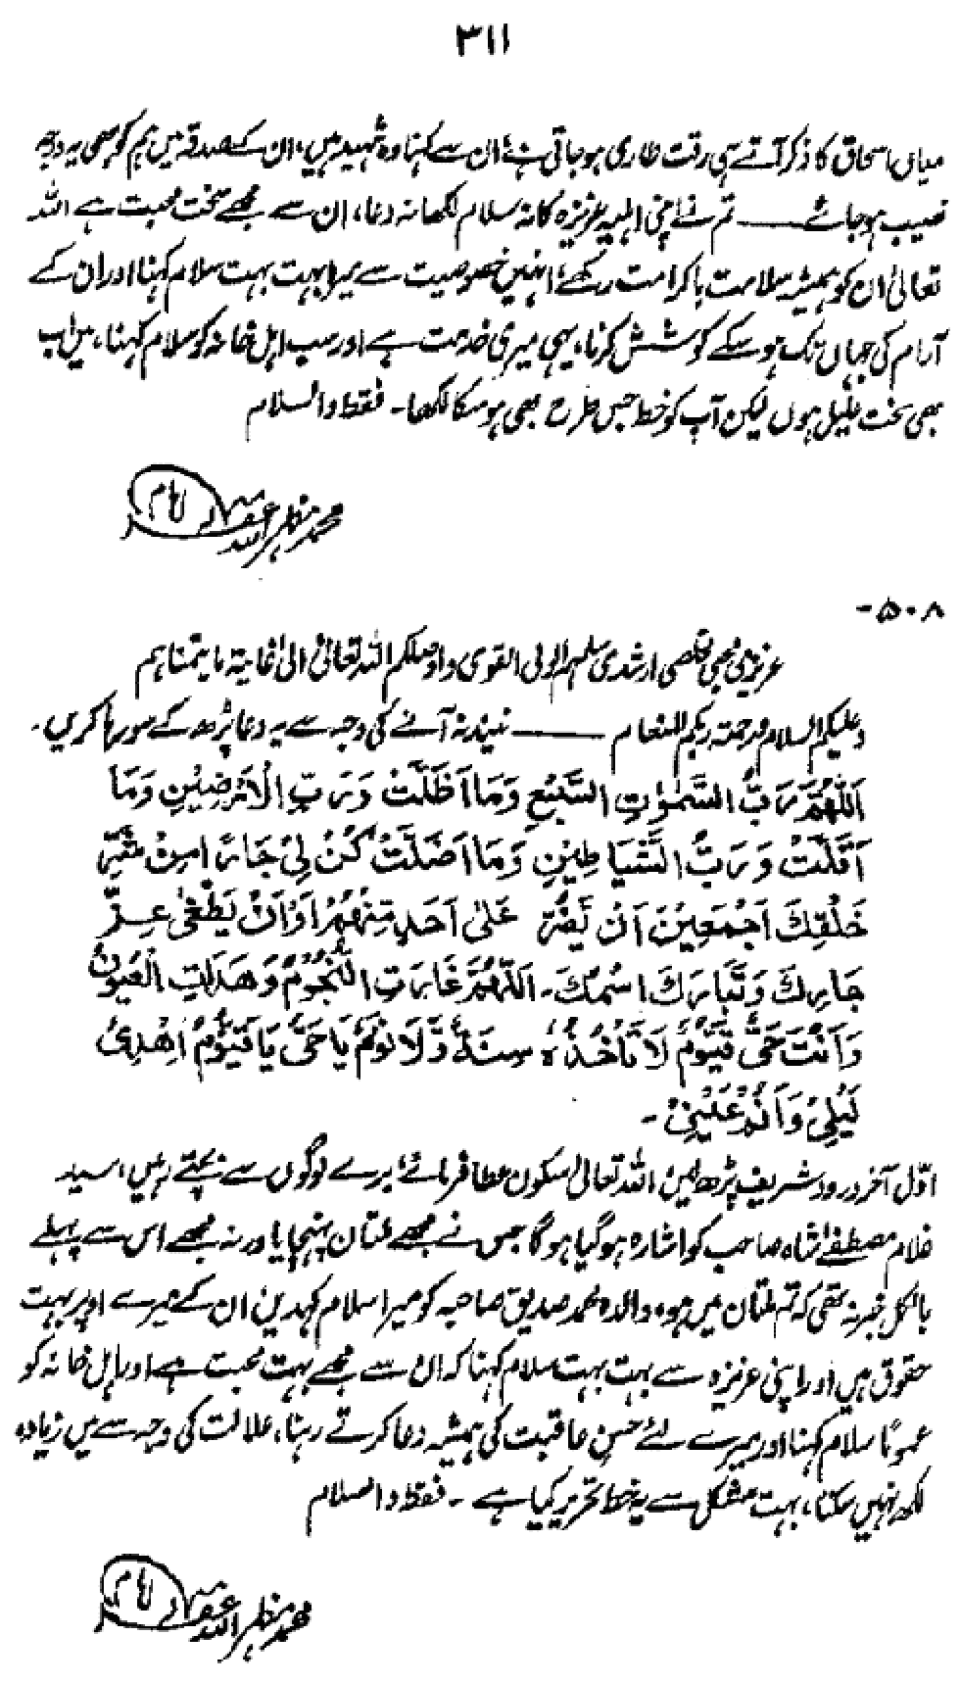 ۳۱۱
میاں اسحاق کا ذکر آتے ہی رقت طاری ہو جاتی ہے، ان سے کہنا وہ شہید ہیں، ان کے صدقہ میں ہم کو بھی یہ درجہ
نصیب ہو جائے ——— تم نے اپنی اہلیہ عزیزہ کا نہ سلام لکھا نہ دعا، ان سے مجھے سخت محبت ہے اللہ
تعالیٰ ان کو ہمیشہ سلامت باکرامت رکھے، انہیں خصوصیت سے میرا بہت بہت سلام کہنا اور ان کے
آرام کی جہاں تک ہو سکے کوشش کرنا، یہی میری خدمت ہے اور سب اہل خانہ کو سلام کہنا، میں اب
بھی سخت علیل ہوں لیکن آپ کو خط جس طرح بھی ہو سکا لکھا۔ فقط والسلام
محمد مظہر اللہ
۵۰۸-
عزیزی محبی مخلصی ارشدی سلمہم الولی القوی و اوصلکم اللہ تعالیٰ الیٰ غایۃ ما یتمناہم
وعلیکم السلام ورحمۃ ربکم المنعام ——— نیند نہ آنے کی وجہ سے یہ دعا پڑھ کے سو رہا کریں۔
اَللّٰهُمَّ رَبَّ السَّمٰوٰتِ السَّبْعِ وَمَا اَظَلَّتْ وَرَبِّ الْاَرْضِيْنِ وَمَا
اَقَلَّتْ وَرَبَّ الشَّيَاطِيْنِ وَمَا اَضَلَّتْ كُنْ لِيْ جَارًا مِنْ شَرِّ
خَلْقِكَ اَجْمَعِيْنَ اَنْ يَّفْرُ عَلٰى اَحَدٍ مِّنْهُمْ اَوْ اَنْ يَطْغٰى عِزُّ
جَارِكَ وَتَبَارَكَ اسْمُكَ۔ اَللّٰهُمَّ غَارَتِ النُّجُوْمُ وَهَدَاَتِ الْعُيُوْنُ
وَاَنْتَ حَيٌّ قَيُّوْمٌ لَا تَأْخُذُهٗ سِنَةٌ وَّلَا نَوْمٌ يَا حَيُّ يَا قَيُّوْمُ اَهْدِئْ
لَيْلِيْ وَاَنِمْ عَيْنِيْ۔
اوّل آخر درود شریف پڑھ لیں، اللہ تعالیٰ سکون عطا فرمائے، برے لوگوں سے بچتے رہیں، سید
غلام مصطفےٰ شاہ صاحب کو اشارہ ہو گیا ہوگا جس نے مجھے ملتان پہنچا یا ورنہ مجھے اس سے پہلے
بالکل خبر نہ تھی کہ تم ملتان میں ہو، والدہ محمد صدیق صاحبہ کو میرا سلام کہدیں، ان کے میرے اوپر بہت
حقوق ہیں اور اپنی عزیزہ سے بہت بہت سلام کہنا کہ ان سے مجھے بہت محبت ہے اور اہل خانہ کو
عموماً سلام کہنا اور میرے لئے حسنِ عاقبت کی ہمیشہ دعا کرتے رہنا، علالت کی وجہ سے میں زیادہ
لکھ نہیں سکتا، بہت مشکل سے یہ خط تحریر کیا ہے۔ فقط والسلام
محمد مظہر اللہ